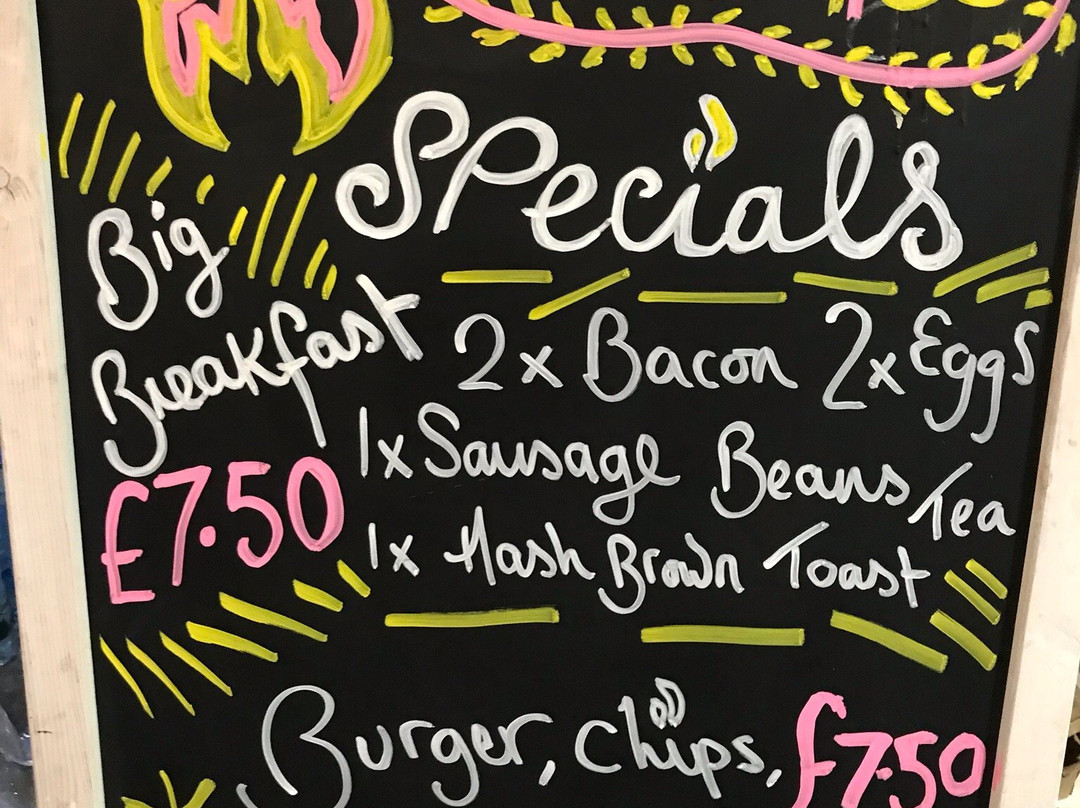 Specials
Big
Breakfast
£7.50
2x Bacon 2x Eggs
1x Sausage Beans Tea
1x Hash Brown Toast
Burger, chips, £7.50